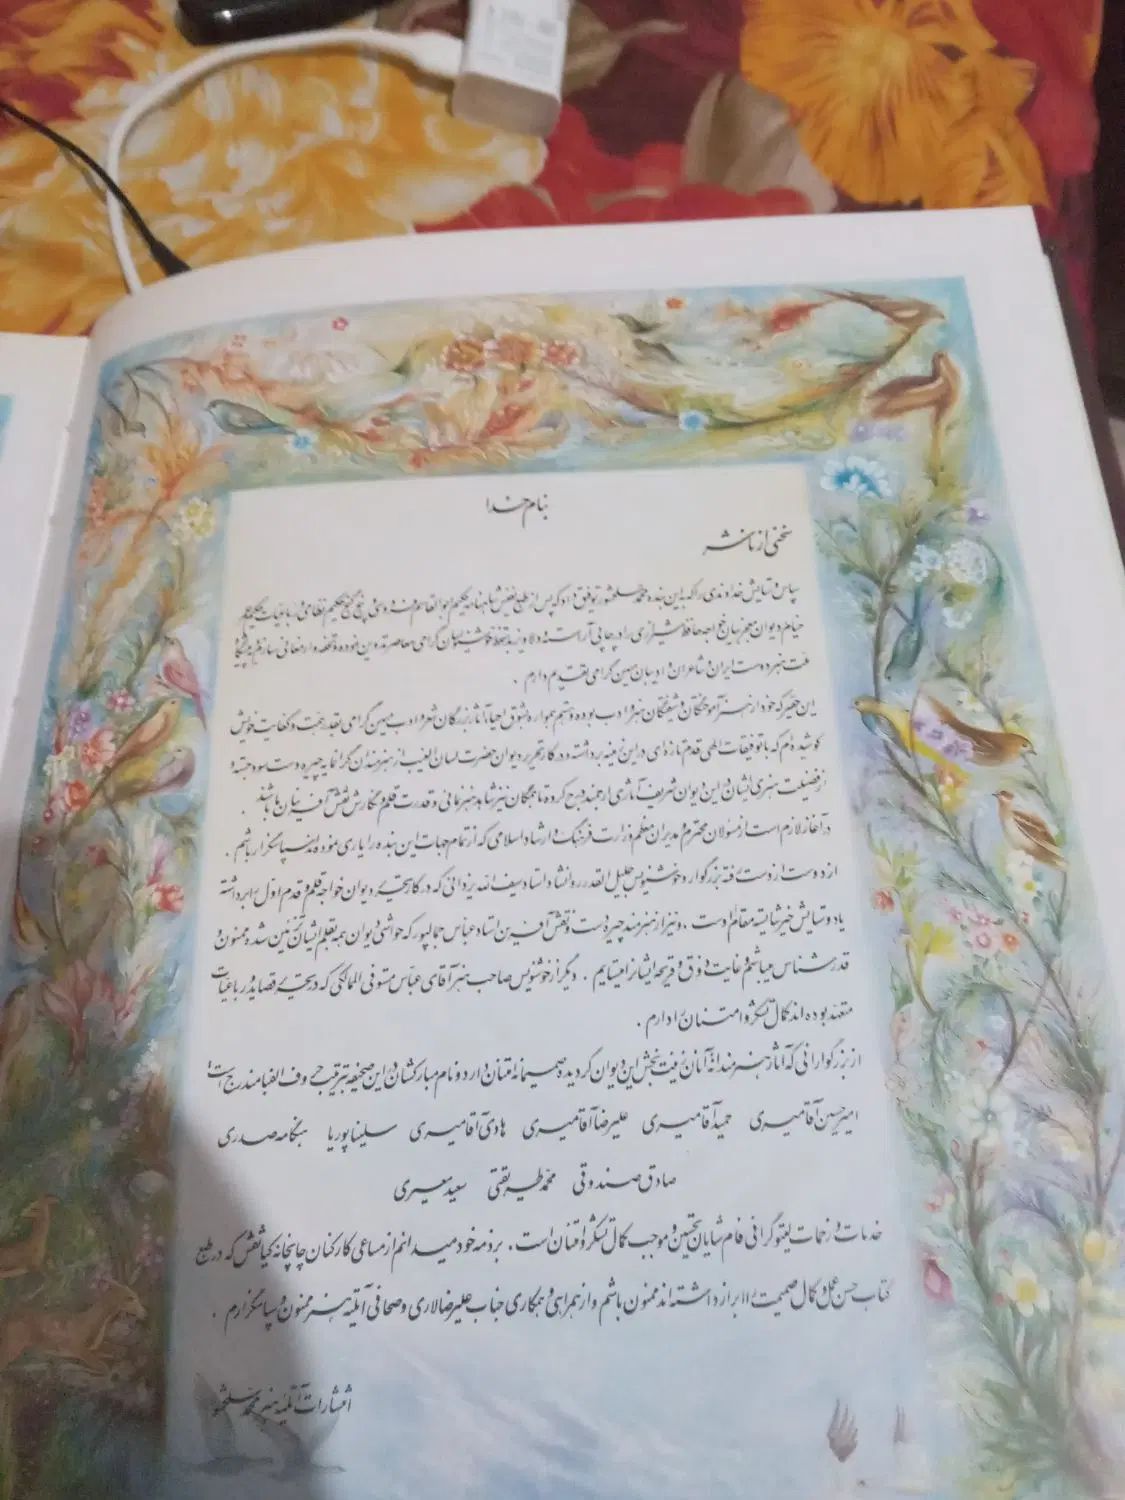 بنام خدا
سخنی از ناشر
سپاس و ستایش خداوندی را که به این بنده محمد سلحشور توفیق داد که پس از طبع نفیس شاهنامه حکیم ابوالقاسم فردوسی و پنج گنج حکیم نظامی و رباعیات حکیم عمر
خیام دیوان معجز بیان خواجه حافظ شیرازی را در چاپی آراسته و دلاویز به خط خوشنویسان گرامی معاصر تدوین نموده و تحفه وار مغانی سازم به پیشگاه
ملت هنردوست ایران و شاعران و ادیبان میهن گرامی تقدیم دارم .
این حقیر که خود از هنر آموختگان و شیفتگان هنر و ادب بوده و هستم همواره بشوق احیاء آثار بزرگان شعر و ادب میهن گرامی بقدر همت و کفایت خویش
کوشیده ام که با توفیقات الهی قدم تازه ای در این زمینه برداشته و در کار تحریر دیوان حضرت لسان الغیب از هنرمندان گرانمایه چیره دست سود جسته و
از فضیلت هنری ایشان در این دیوان شریف آثاری ارجمند درج کرده تا همگان نیز شاهد هنرنمائی و قدرت قلم نگارش نقش آفرینان باشند .
در آغاز لازم است از مسئولان محترم و مدیران معظم وزارت فرهنگ و ارشاد اسلامی که از تمام جهات این بنده را یاری نموده اند سپاسگزار باشم .
از دوست از دست رفته بزرگوار و خوشنویس جلیل القدر روانشاد استاد سیف الله یزدانی که در کار تحریر دیوان خواجه قلم و قدم اول را برداشته
یاد و ستایش خیر شایسته مقام اوست . و نیز از هنرمند چیره دست و نقش آفرین استاد عباس جمالپور که حواشی دیوان همه بقلم ایشان تزئین شده ممنون و
قدرشناس میباشم و غایت ذوق و قریحه ایشان را میستایم . دیگر از خوشنویس صاحب هنر آقای عباس مستوفی الممالکی که در تحریر قصاید و رباعیات
متعهد بوده اند کمال تشکر و امتنان را دارم .
از بزرگوارانی که آثار هنرمندانه آنان زینت بخش این دیوان گردیده صمیمانه امتنان دارد و نام مبارکشان در این صحیفه به ترتیب حروف الفبا مندرج است
امیرحسین آقامیری حمید آقامیری علیرضا آقامیری هادی آقامیری سلینا پوریا هنگامه صدری
صادق صندوقی محمد طریقتی سعید معیری
خدمات و زحمات لیتوگرافی فام شایان تحسین و موجب کمال تشکر و امتنان است . بر ذمه خود میدانم از مساعی کارکنان چاپخانه کیانقش که در طبع
کتاب حسن عمل و کمال صمیمیت را ابراز داشته اند ممنون باشم و از همراهی و همکاری جناب علیرضا لاری و صحافی آتلیه هنر ممنون و سپاسگزارم .
انتشارات آتلیه هنر محمد سلحشور